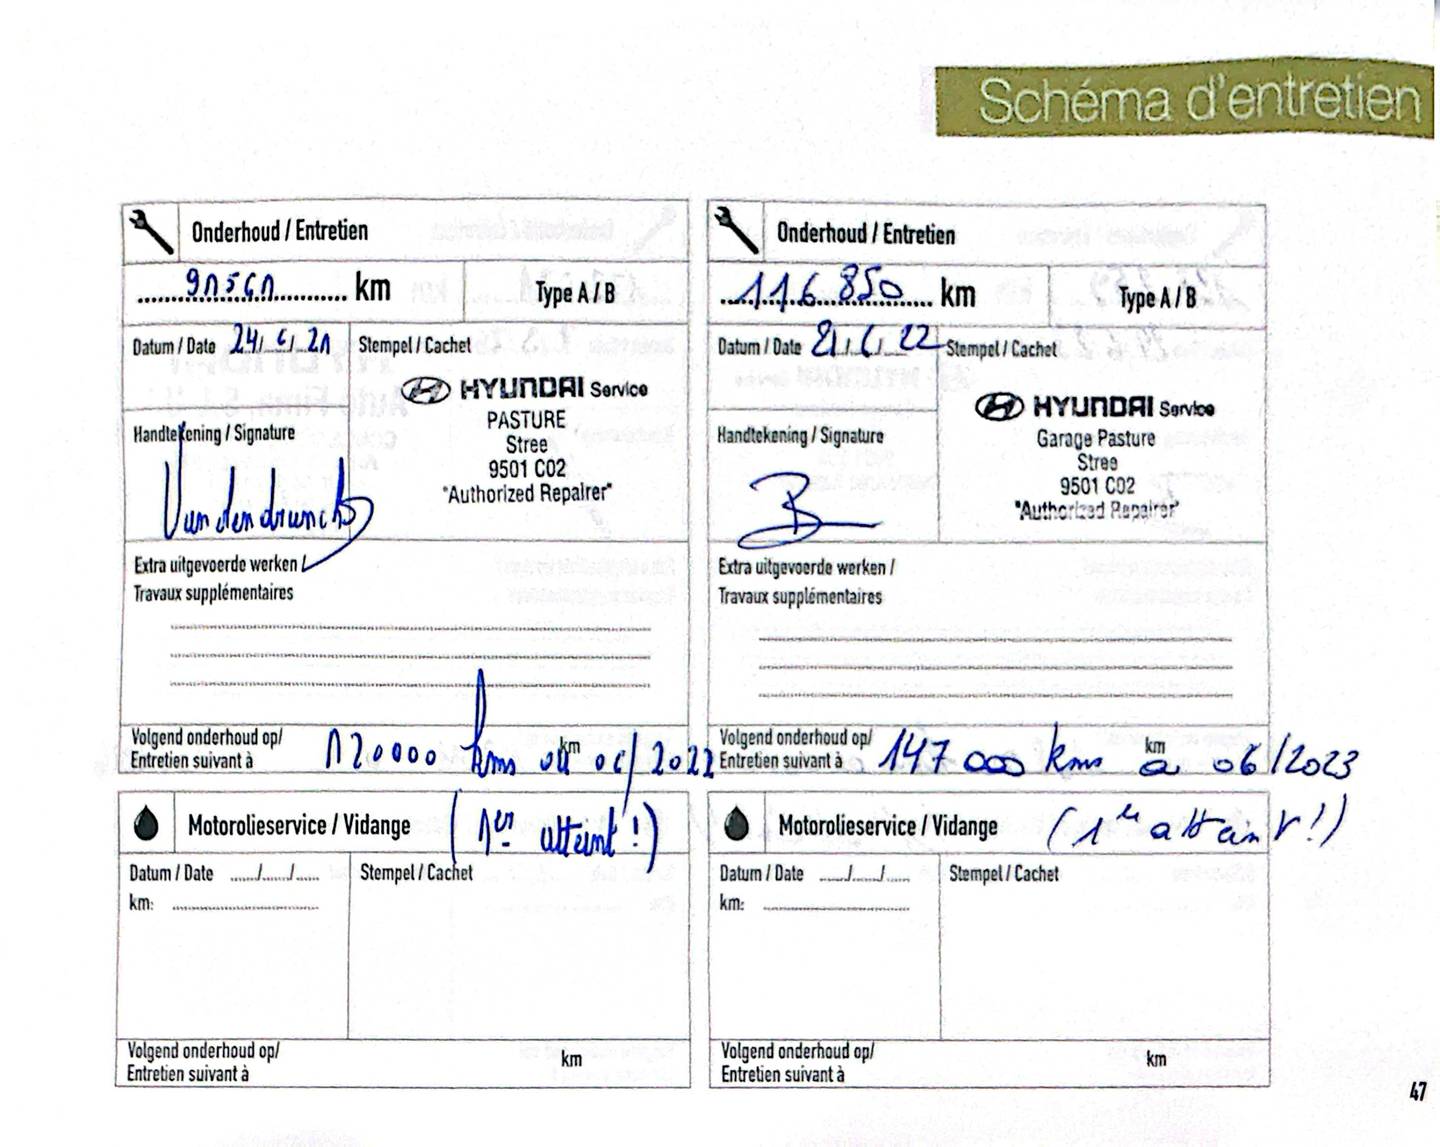 Schéma d'entretien
Onderhoud / Entretien
91561 km
Type A / B
Datum / Date 24/6/21
Stempel / Cachet
HYUNDAI Service
PASTURE
Stree
9501 C02
"Authorized Repairer"
Handtekening / Signature
Extra uitgevoerde werken /
Travaux supplémentaires
Volgend onderhoud op/
Entretien suivant à 120000 kms ou 06/2022 km
(1er atteint!)
Motorolieservice / Vidange
Datum / Date ...../...../.....
Stempel / Cachet
km:
Volgend onderhoud op/
Entretien suivant à
km
Onderhoud / Entretien
116.850 km
Type A / B
Datum / Date 21/6/22
Stempel / Cachet
HYUNDAI Service
Garage Pasture
Stree
9501 C02
"Authorized Repairer"
Handtekening / Signature
Extra uitgevoerde werken /
Travaux supplémentaires
Volgend onderhoud op/
Entretien suivant à 147 000 kms 06/2023 km
(1er atteint!)
Motorolieservice / Vidange
Datum / Date ...../...../.....
Stempel / Cachet
km:
Volgend onderhoud op/
Entretien suivant à
km
47